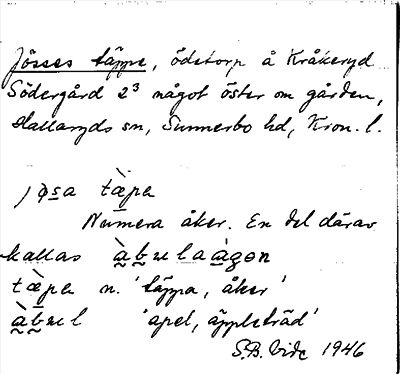 Jösses täppe, ödetorp å Kråkeryd
Södergård 2³ något öster om gården,
Hallaryds sn, Sunnerbo hd, Kron. l.
jøsa tæ̀pa
Numera åker. En del därav
kallas àbulaàgən
tæ̀pa n. 'täppa, åker'
àbul 'apel, äppleträd'
S.B. Vide 1946